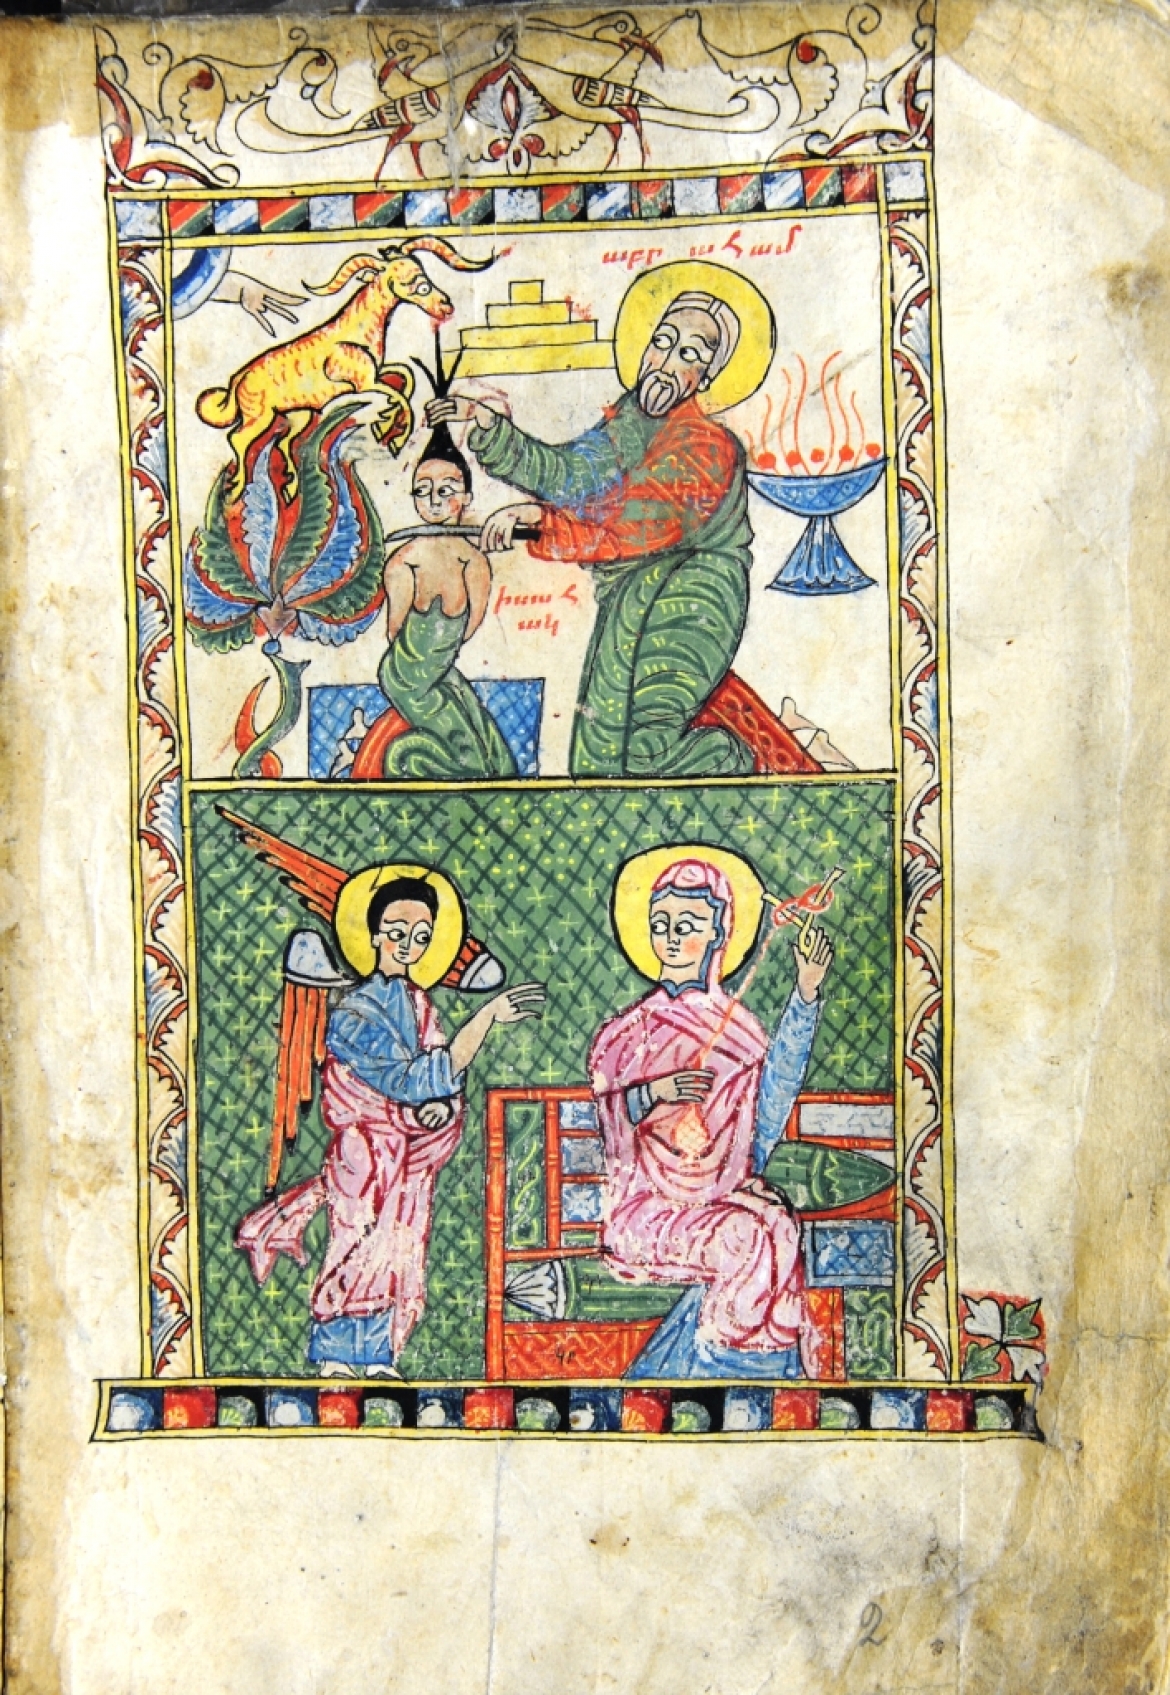 աբր ահամ
իսահ
ակ
2